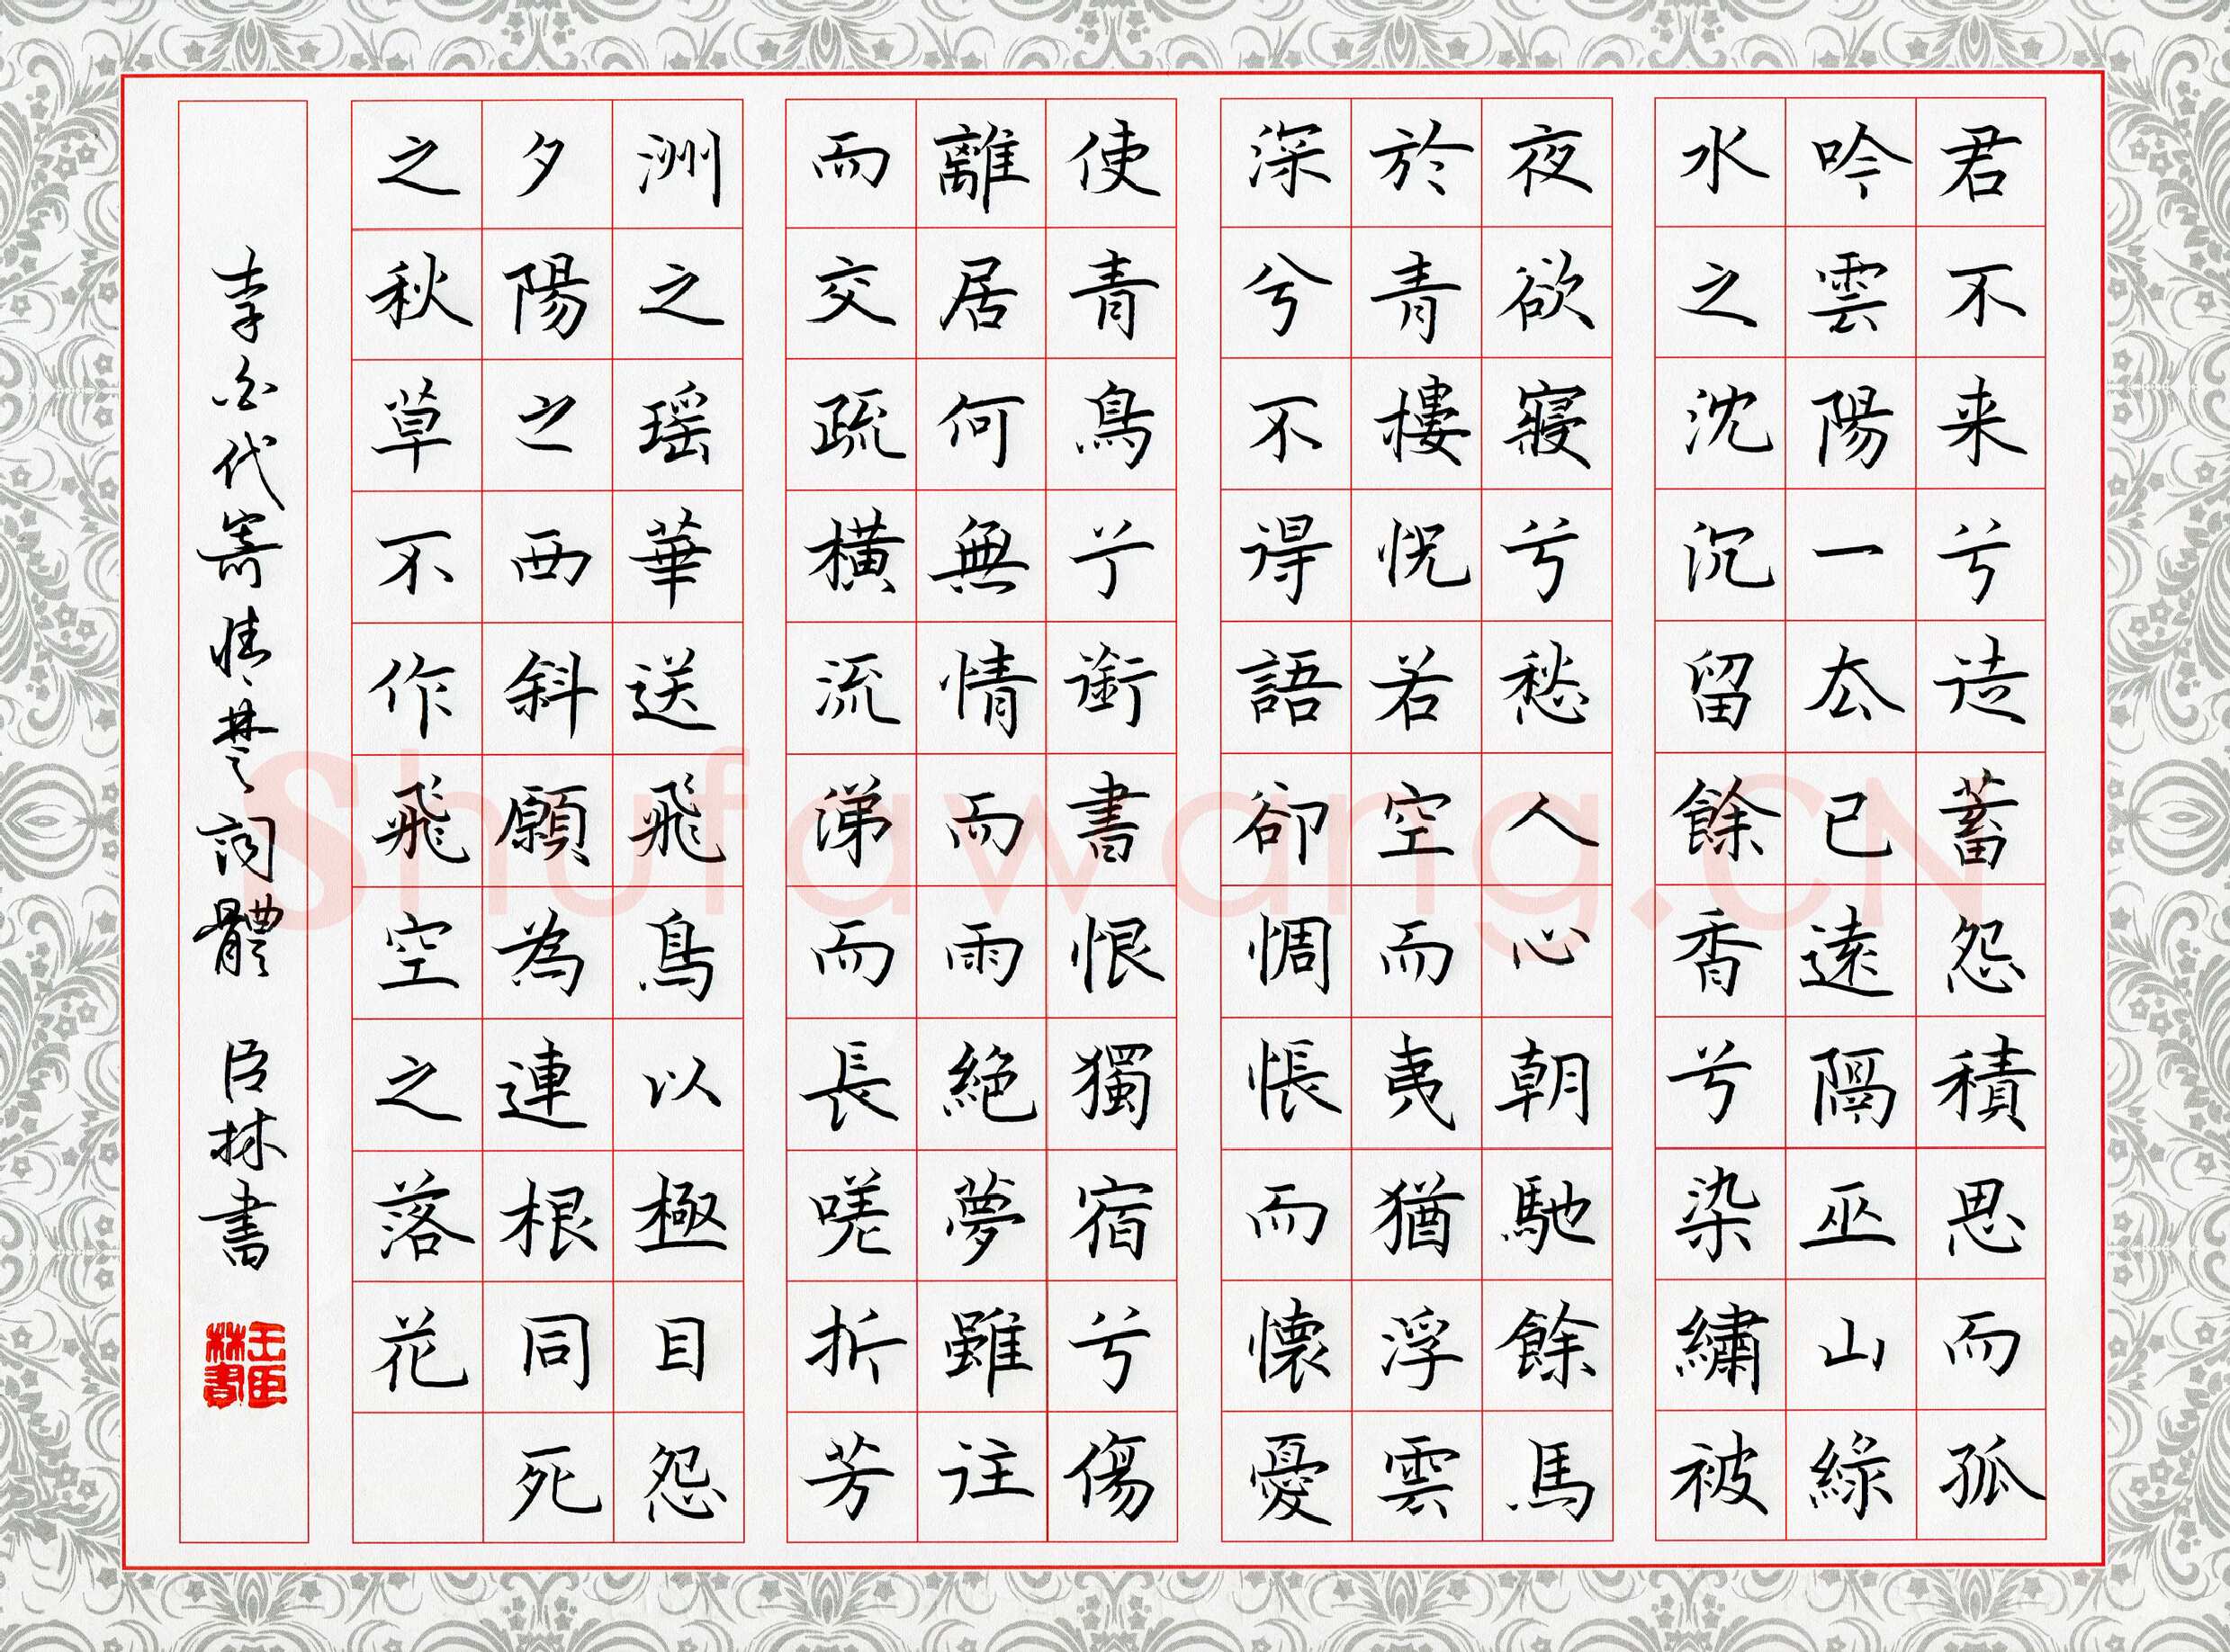 君不来兮徒蓄怨積思而孤
吟雲陽一厺已遠隔巫山綠
水之沈沉留餘香兮染繡被
夜欲寢兮愁人心朝馳餘馬
於青樓怳若空而夷猶浮雲
深兮不得語卻惆悵而懷憂
使青鳥兮銜書恨獨宿兮傷
離居何無情而雨絕夢雖往
而交疏橫流涕而長嗟折芳
洲之瑶華送飛鳥以極目怨
夕陽之西斜願為連根同死
之秋草不作飛空之落花
李白代寄情楚詞體 臣林書
王臣林書
Shufawang.CN